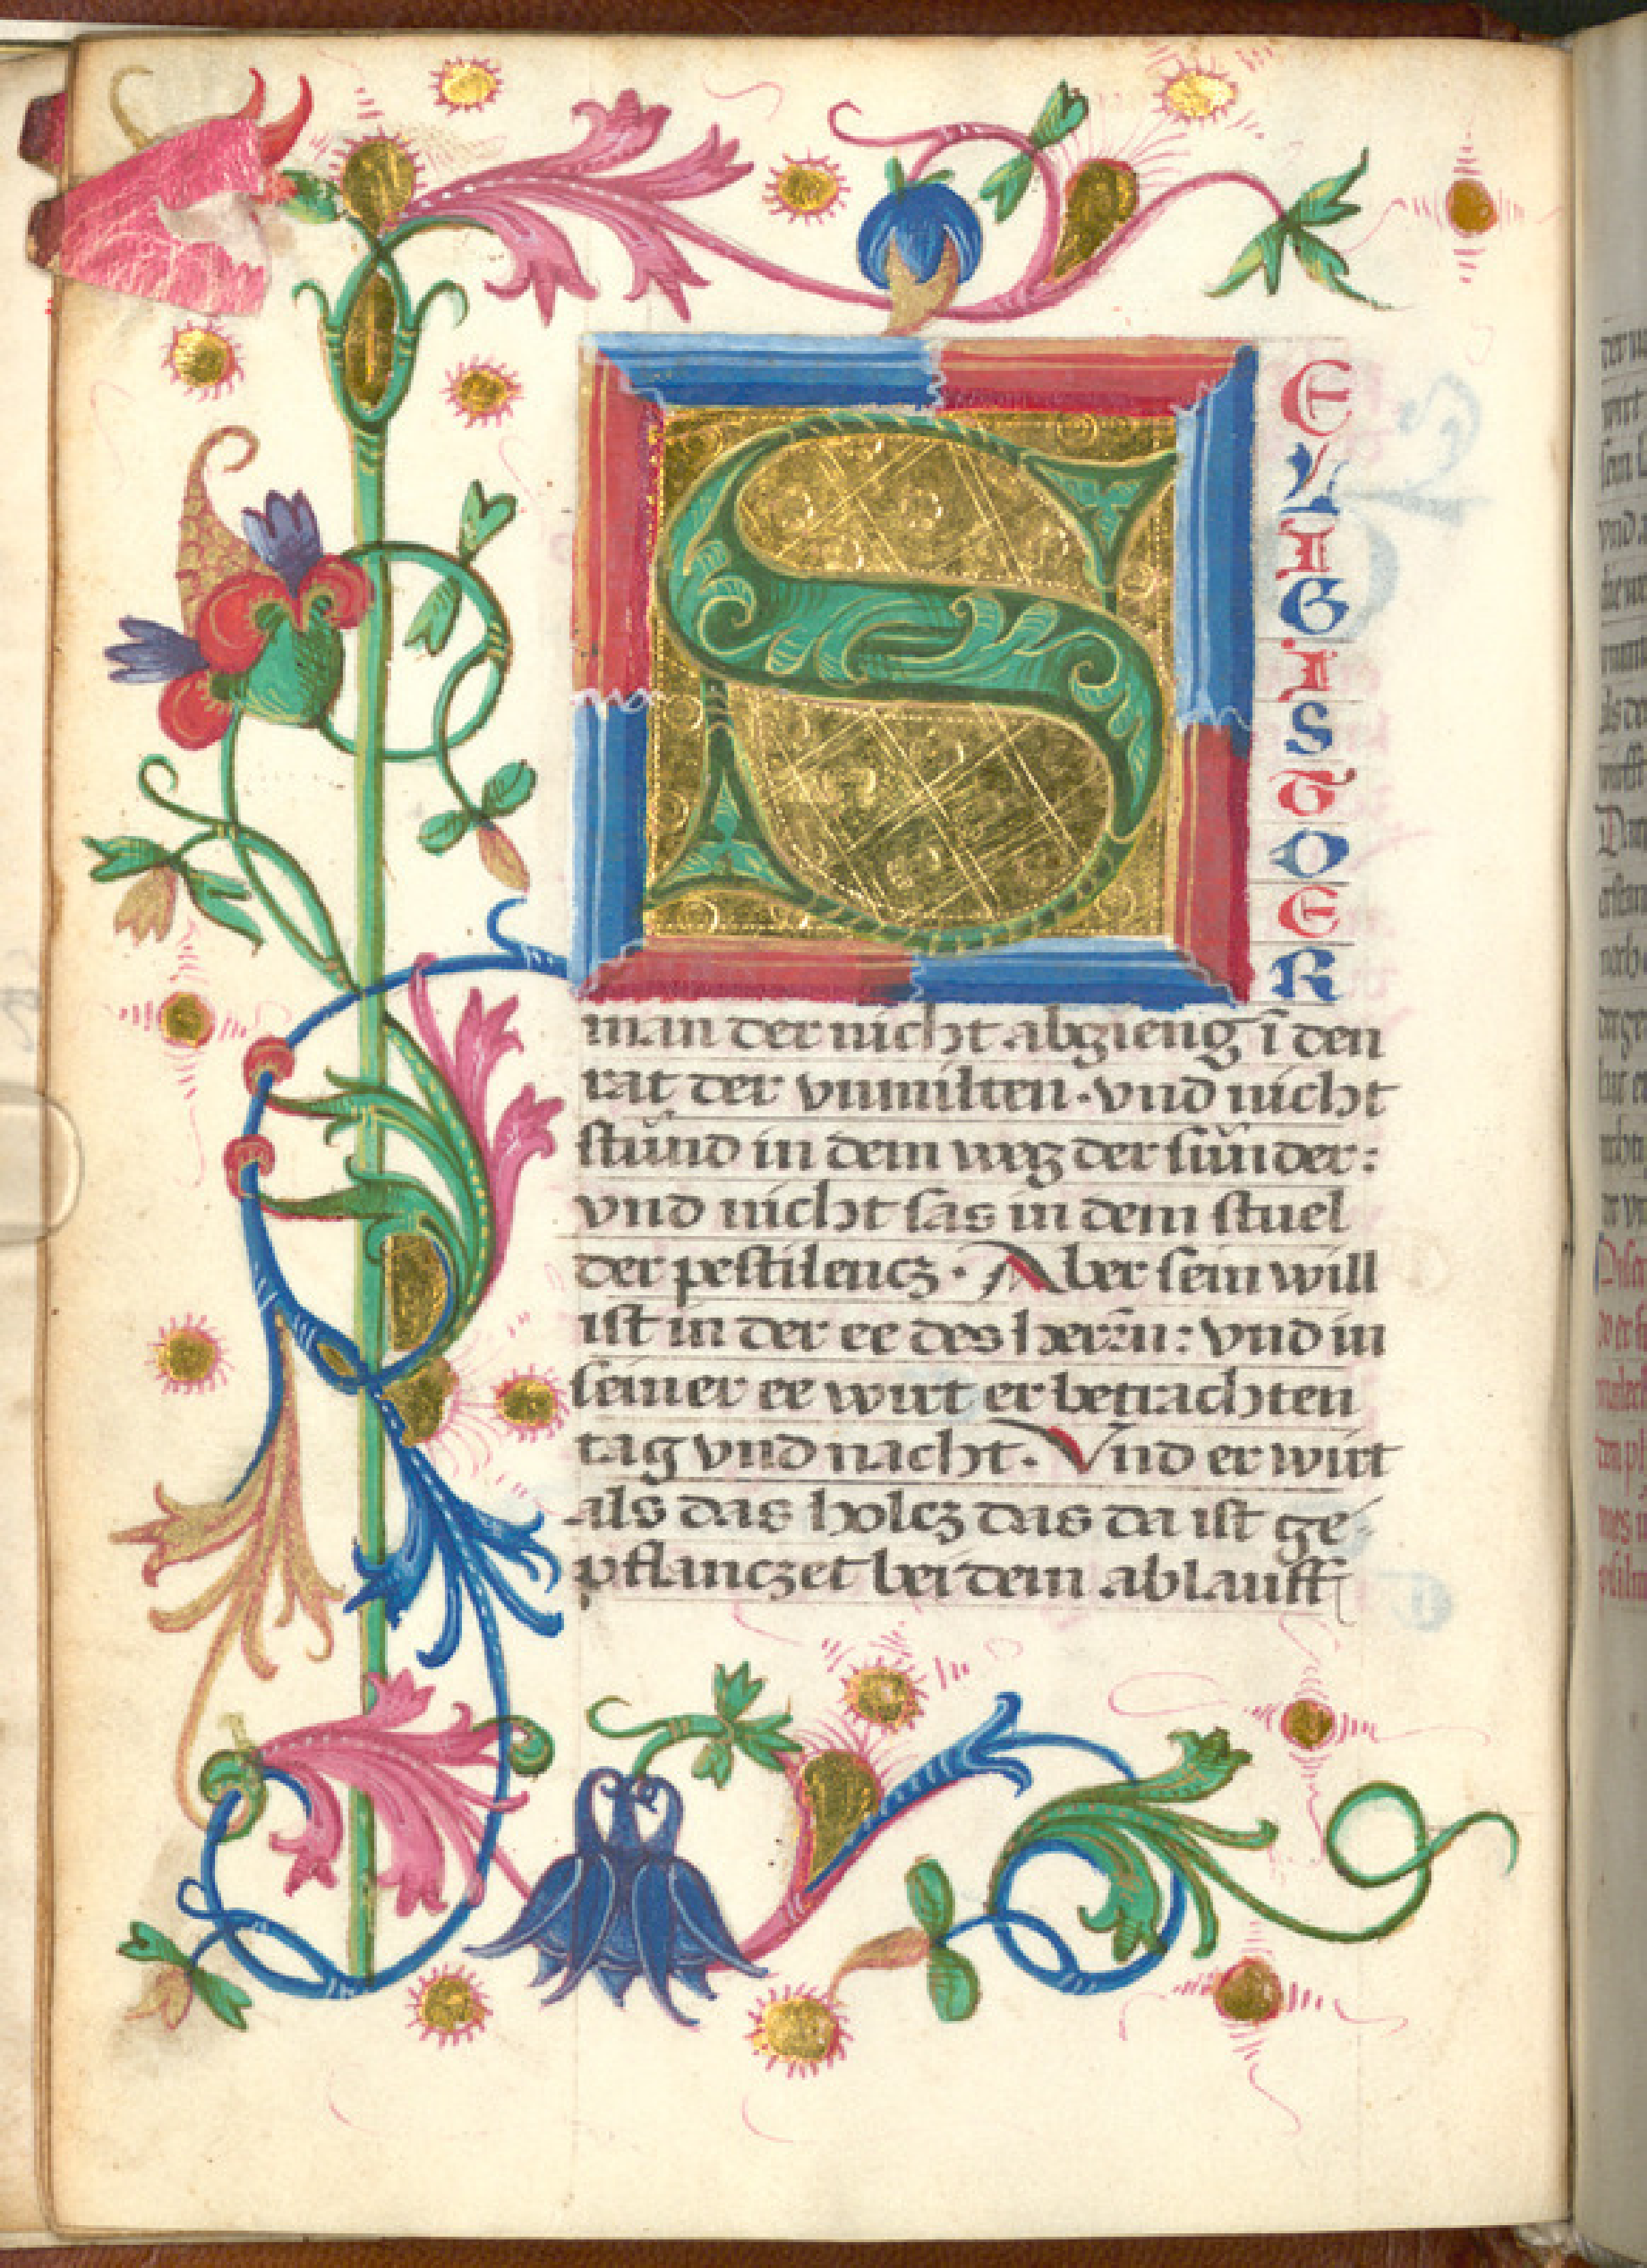 S
E
L
I
G
I
S
T
D
E
R
man der nicht abgieng ī den
rat der vnmilten · vnd nicht
stůnd in dem weg der sünder :
vnd nicht sas in dem stuel
der pestilencz · Aber sein will
ist in der ee des herrn : vnd in
seiner ee wirt er betrachten
tag vnd nacht · Vnd er wirt
als das holcz das da ist ge-
pflanczet bei dem ablauff